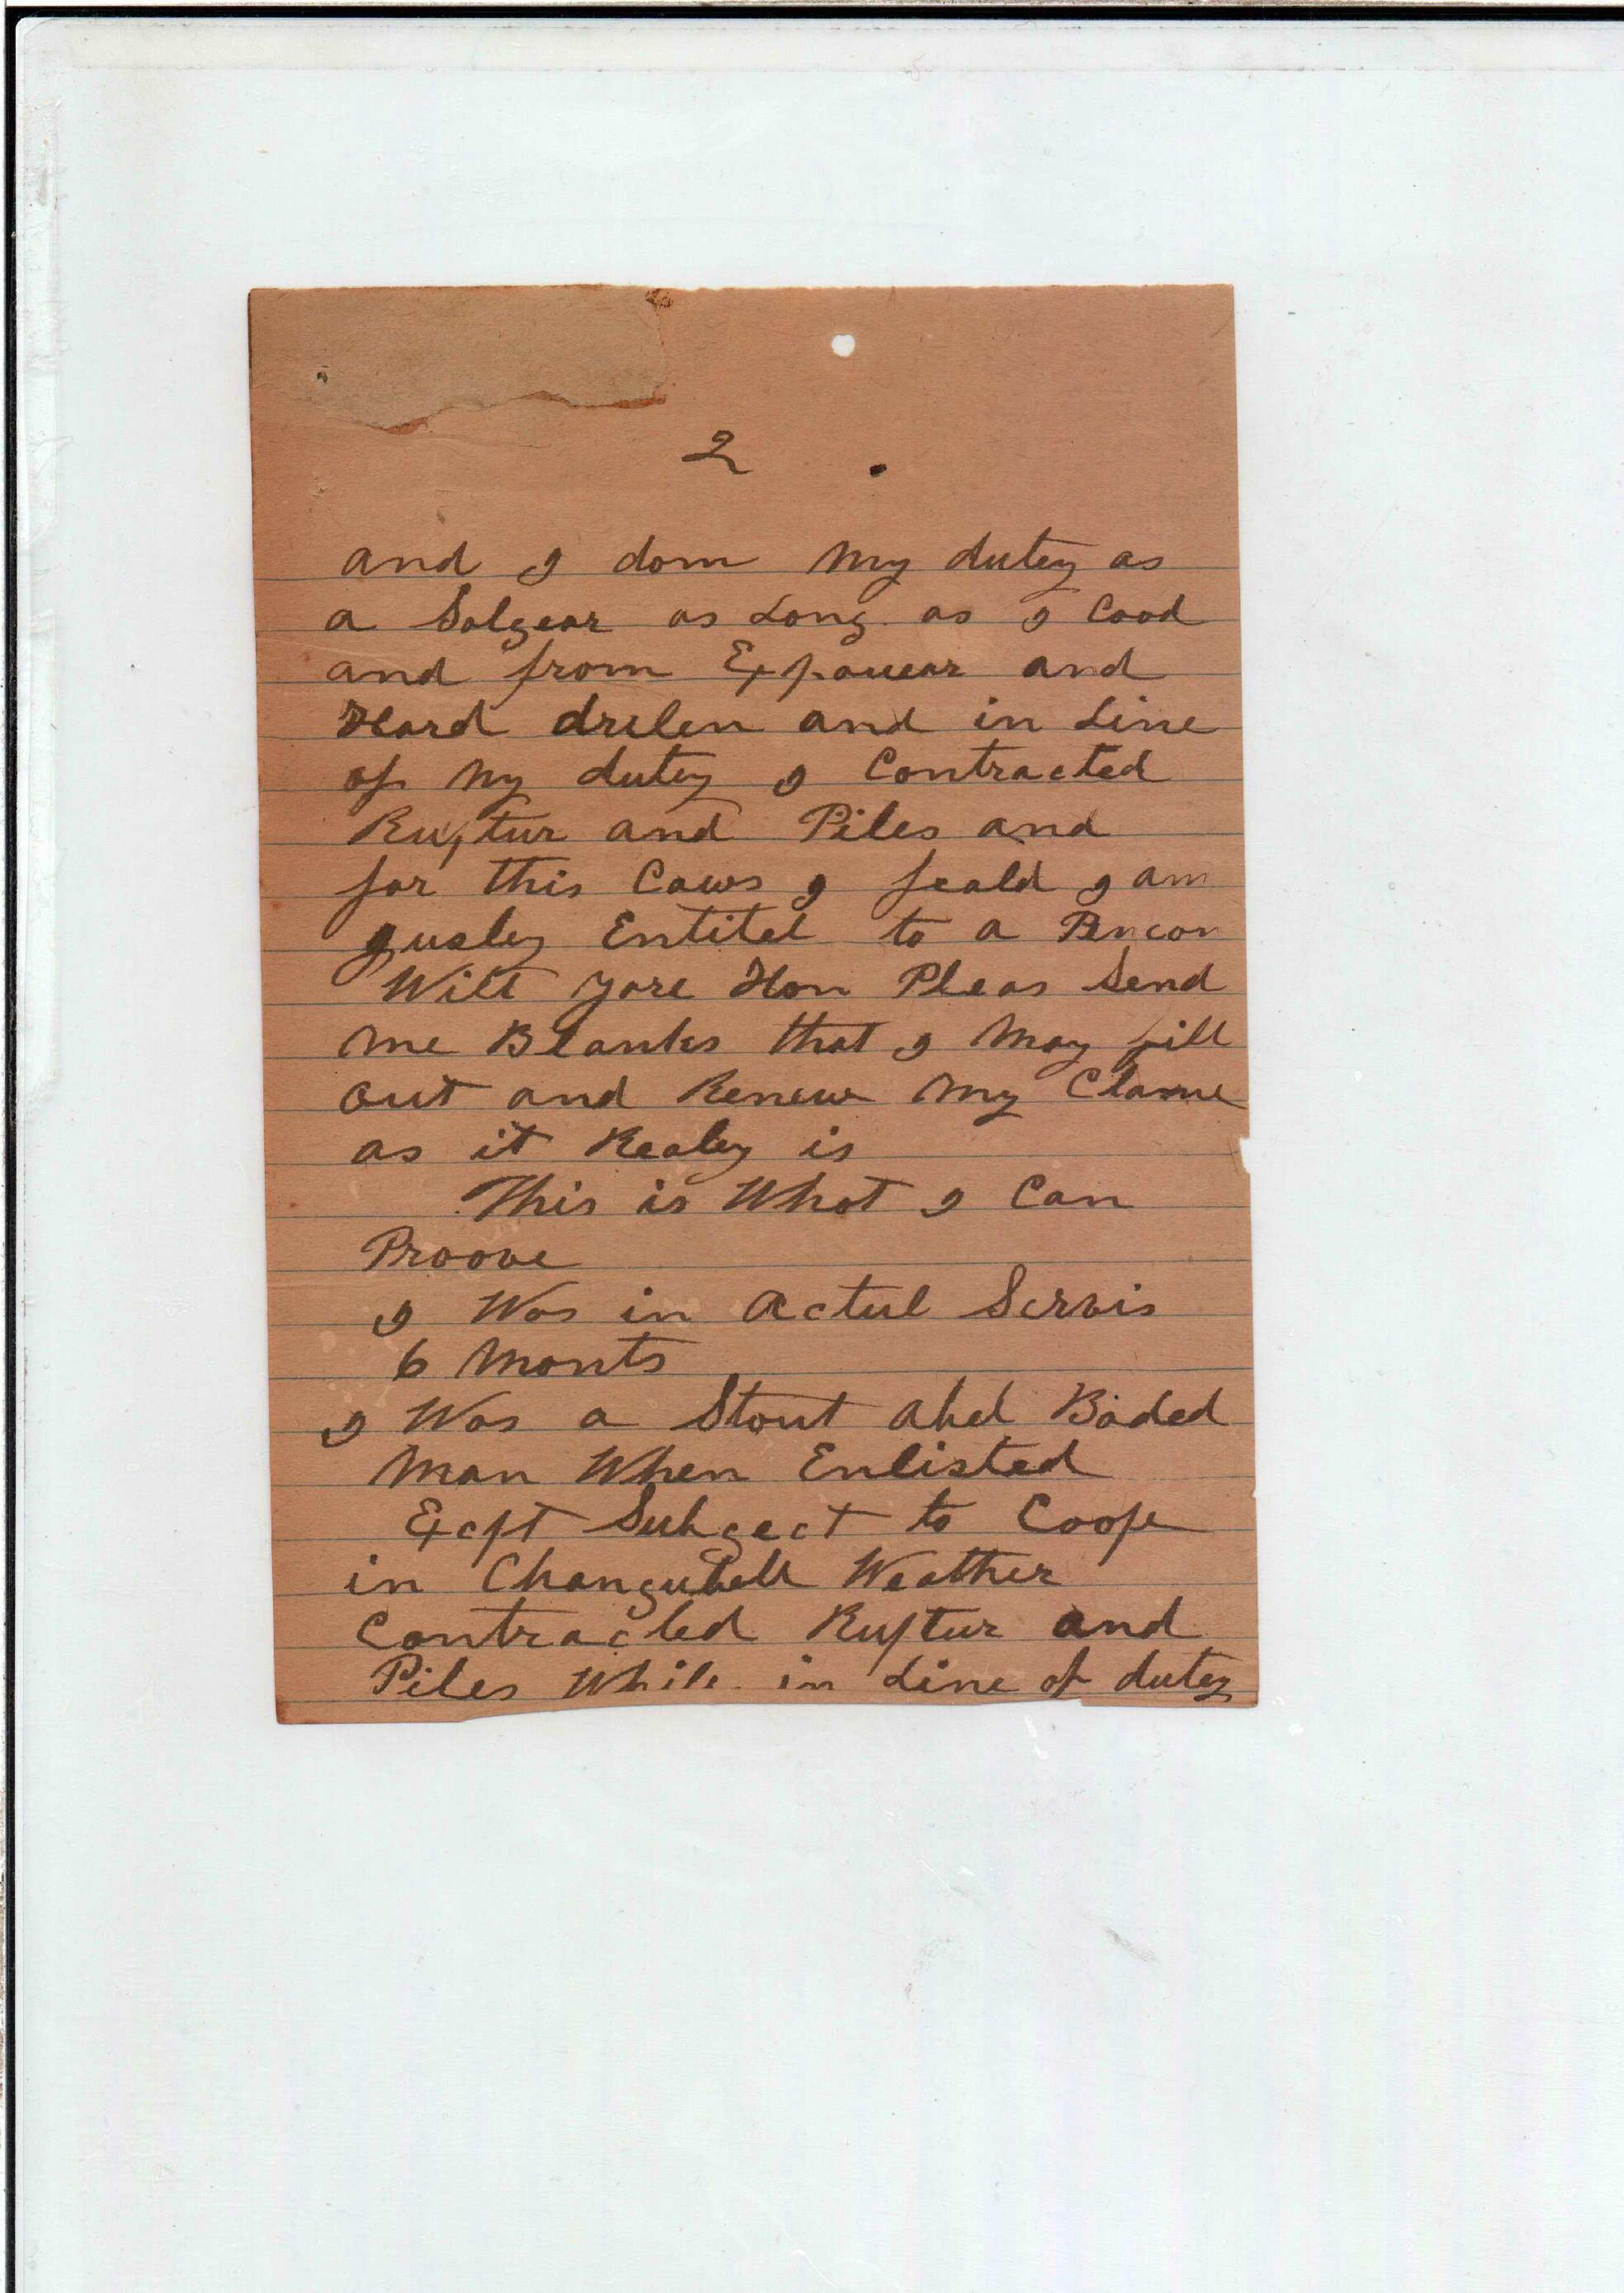 2
and I dom my dutey as
a Solgear as Long as I Cood
and from Expouear and
Hard drilen and in Line
of my dutey I Contracted
Ruptur and Piles and
for this Caws I feald I am
gusley Entitel to a Pencon
Will yore Hon Pleas Send
me Blanks that I may fill
out and Renew my Clame
as it Realey is
This is What I Can
Proove
I Was in Actul Servis
6 Monts
I Was a Stout abel Boded
man When Enlisted
Excpt Subgect to Coofe
in Changubell Weather
Contracted Ruptur and
Piles While in Line of dutey